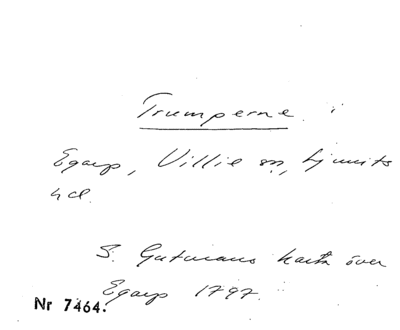 Trumperne
Egarp, Villie sn, Ljunits
hd.
S. Gutmans karta över
Egarp 1797.
Nr 7464.